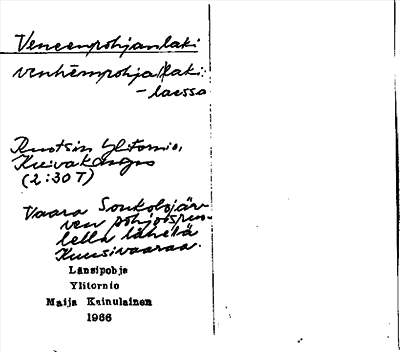 Veneenpohjanlaki
venhēmpohja/laki:
- laessa
Ruotsin Ylitornio,
Kuivakangas
(2:30 T)
Vaara Soukolojär-
ven pohjoispuo-
lella lähellä
Kuusivaaraa.
Länsipohja
Ylitornio
Maija Kainulainen
1966